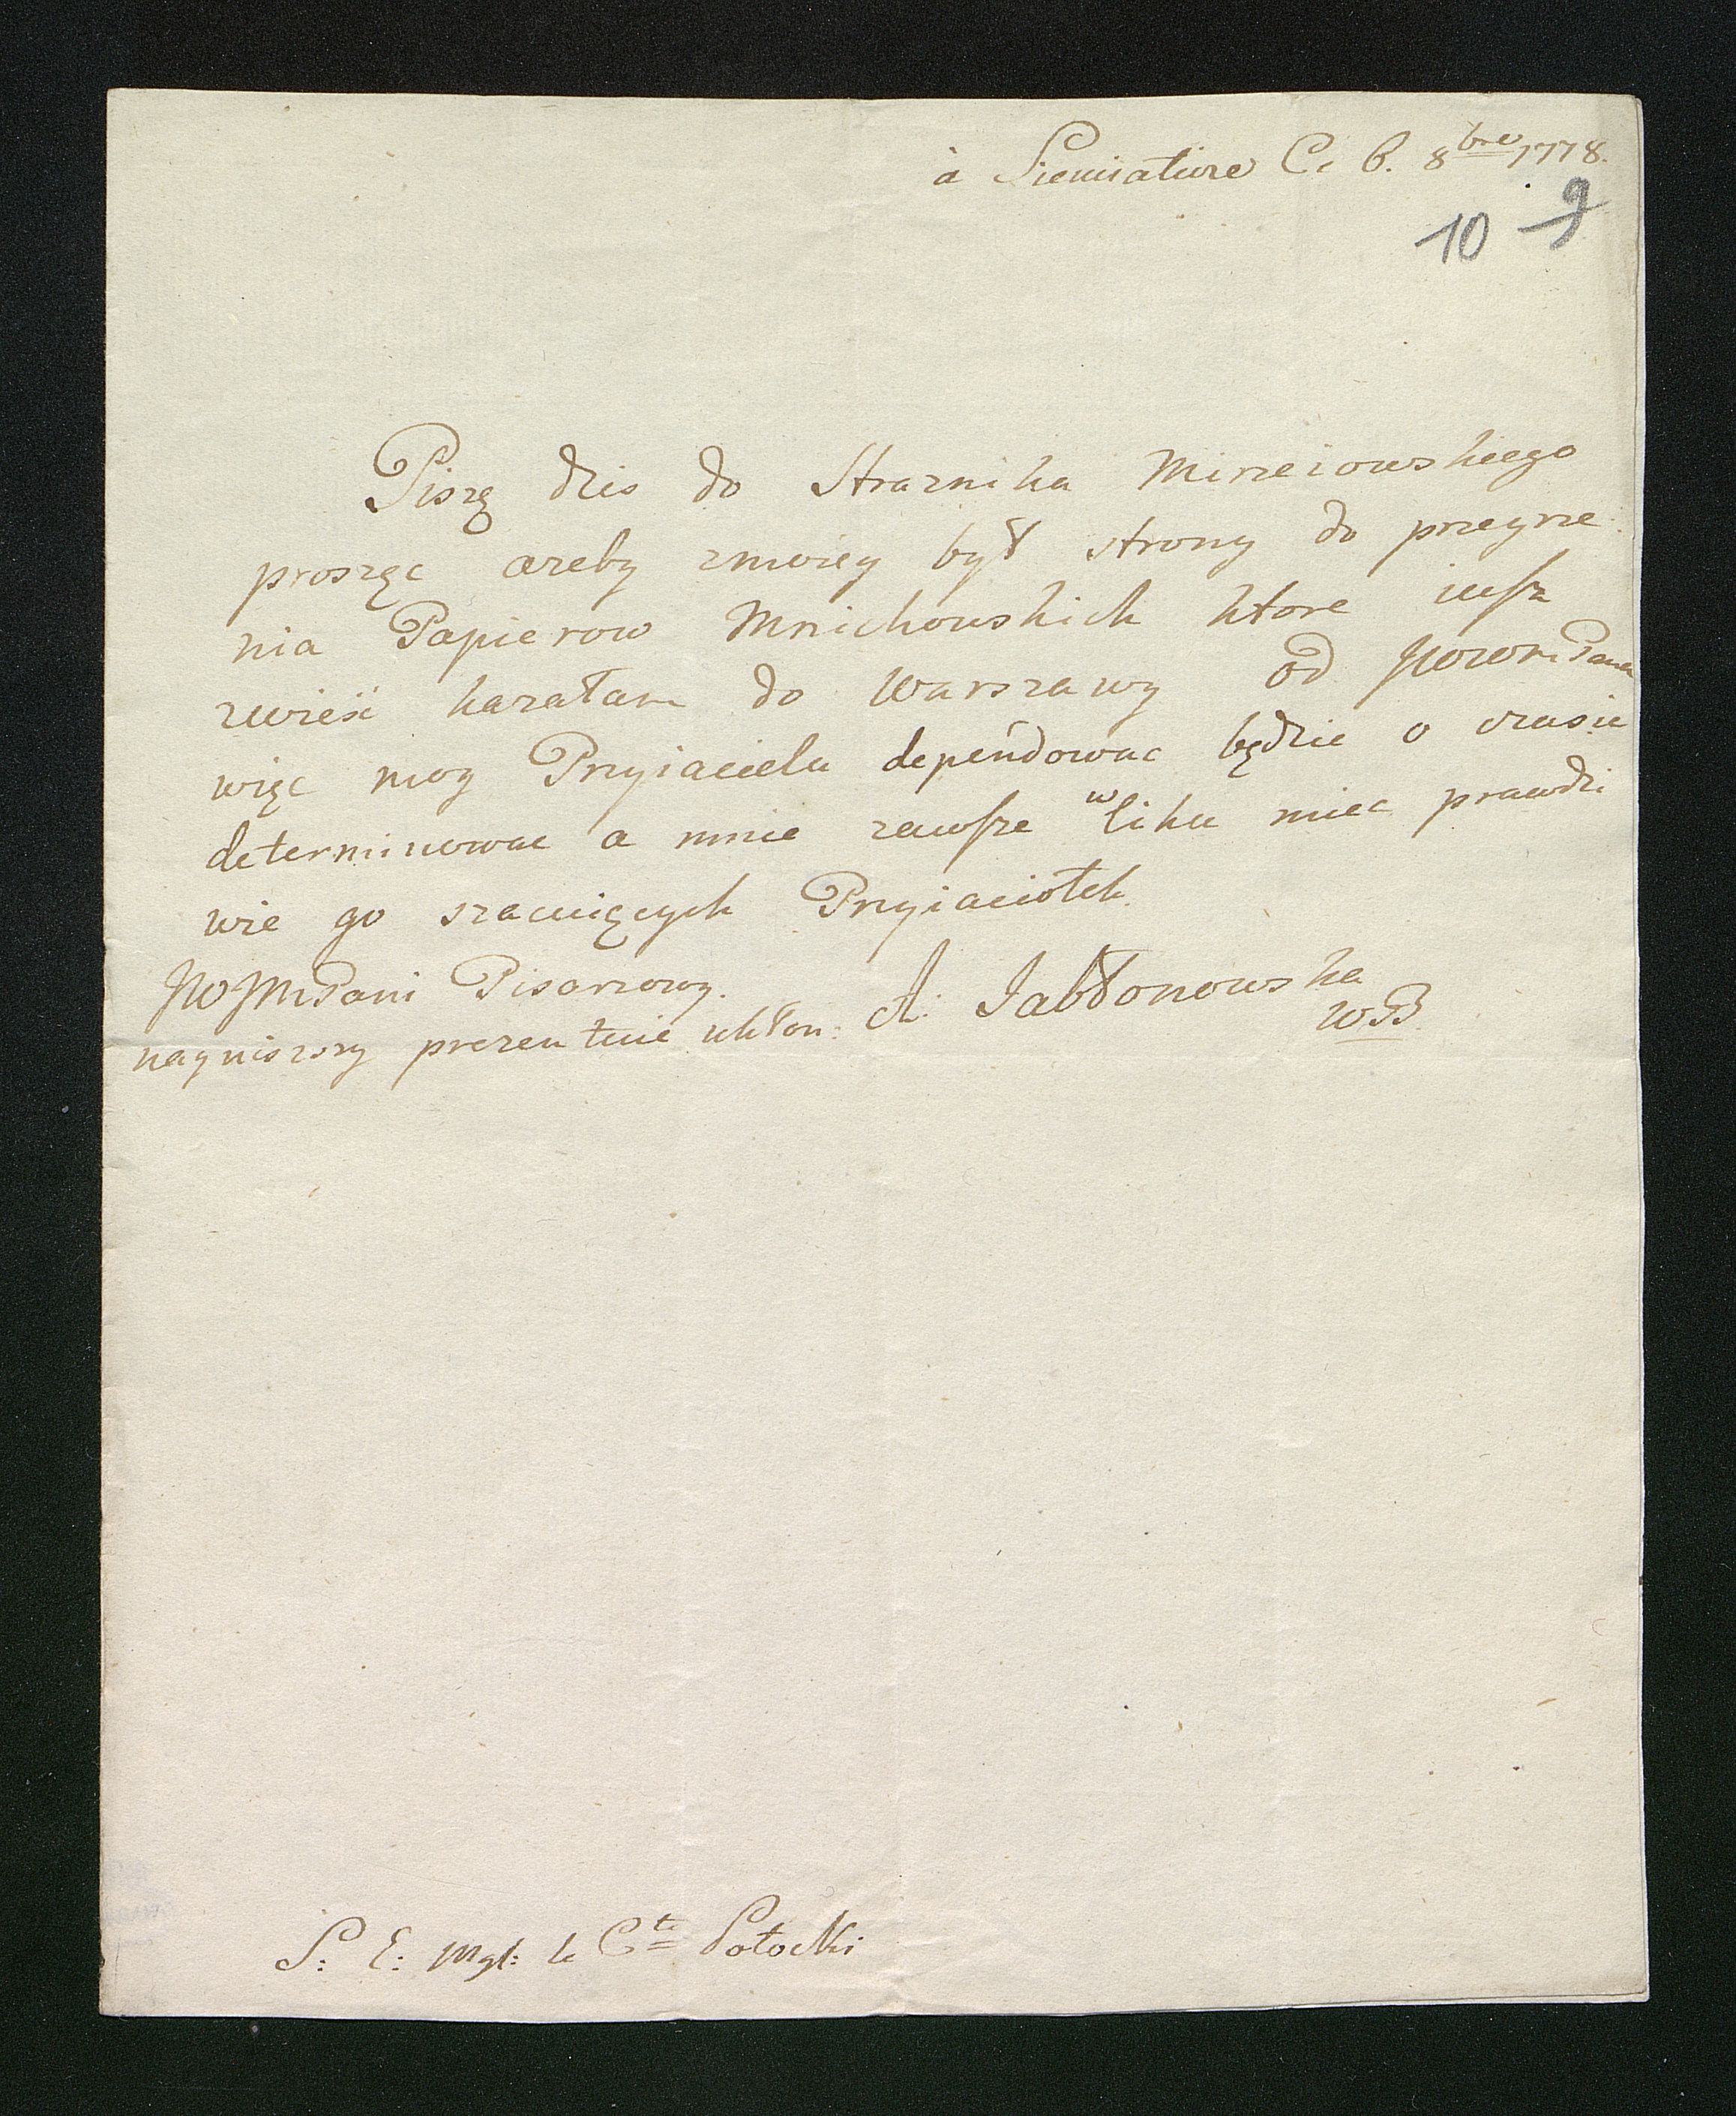 à Siemiaticze Ce 6. 8bre 1778.
10 9
Piszę dzis do Straznika Mirzeiowskiego
prosząc azeby zmoiey był strony do przeyrze:
nia Papierow Mnichowskich ktore iusz
zwieść kazałam do Warszawy od JWWMPana
więc moy Przyiacielu dependowac będzie o czasie
determinowac a mnie zawsze w liku miec prawdzi
wie go szacuiących Przyiaciołek.
JWJMPani Pisarzowy. A: Jabłonowska
nayniszszy prezentuie ukłon: WB.
S: E: Mgr: le Cte Potocki